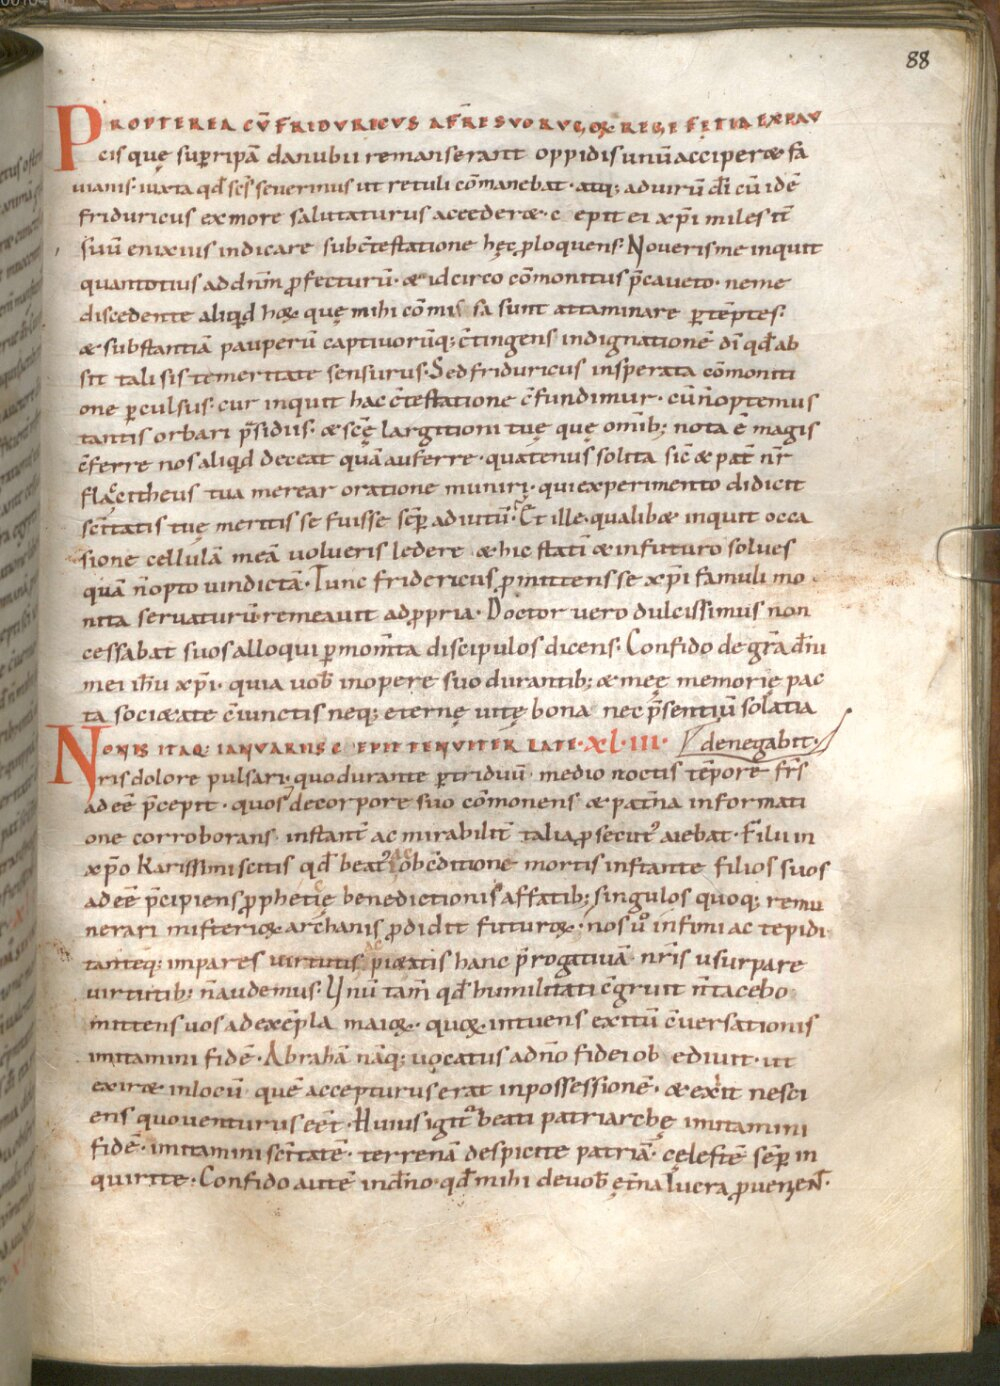 88
PROPTEREA CŪ FRIDURICUS AFR̄E SVO RUGOꝜ REGE FĘTIA EXPAU
cis quę sup̱ ripā danubii remanserant oppidis unū acciper& fa
uianis· iuxta qđ scs̄ seuerinus ut retuli cōmanebat· atq; ad uirū dī cū idē
friduricus ex more salutaturus acceder&· c epit ei xp̄i miles it̄
suū enixius indicare sub c̄testatione hęc p̱loquens· Noueris me inquit
quantotius ad dn̄m p̱fecturū· & idcirco cōmonitus p̄caueto· ne me
discedente aliqđ hoꝝ quę mihi cōmis sa sunt attaminare p̱tēptes·
& substantiā pauperū captiuorūq; c̄tingens indignationē dī qđ ab
sit tali sis temeritate sensurus· Sed friduricus insperata cōmoniti
one p̱culsus· cur inquit hac c̄testatione c̄fundimur· cū n̄ optemus
tantis orbari p̄sidiis· & scę̄ largitioni tuę quę omīb; nota ē magis
c̄ferre nos aliqđ deceat quā auferre· quatenus solita sic̄ & pat̄ nr̄
flaccitheus tua merear oratione muniri· qui experimento didicit
sc̄itatis tuę meritis se fuisse sēp̱ adiutū· Et ille· qualib& inquit occa
sione cellulā meā uolueris ledere & hic statī & in futuro solues
quā n̄ opto uindictā· Tunc fridericus p̱mittens se xp̄i famuli mo
nita seruaturū· remeauit ad p̱pria· Doctor uero dulcissimus non
cessabat suos alloqui p̱ mom̄ta discipulos dicens· Confido de gr̄a dn̄i
mei ihū xp̄i· quia uob̄ in opere suo durantib; & meę memorię pac
ta soci&ate c̄iunctis neq; eternę uitę bona nec p̄sentiū solatia
NONIS ITAQ; IANUARIIS C EPIT TENUITER LATE· XL·III· denegabit·
ris dolore pulsari· quo durante p̱ triduū· medio noctis tēpore fr̄s
adeē p̄cepit· quos de corpore suo cōmonens & pat̄na informati
one corroborans· instant̄ ac mirabilit̄ talia p̱secut᷒ aiebat· Filii in
xp̄o karissimi scitis qđ beat᷒ iacob c̄ditione mortis instante filios suos
adeē p̄cipiens p̱phetię benedictionis affatib; singulos quoq; remu
nerari misterioꝝ archanis p̱didit futuroꝝ· nos u̇ infimi ac tepidi·
tanteq; impares uirtutis pi&atis hanc p̄rogatiuā nr̄is usurpare
uirtutib; n̄ audemus· Unū tam̄ qđ humilitati c̄gruit n̄ tacebo
mittens uos ad exēpla maioꝝ· quoꝝ intuens exitū c̄uersationis
imitamini fidē· Abrahā nāq; uocatus a dn̄o fide ob ediuit· ut
exir& in locū quē accepturus erat in possessionē· & exiit nesci
ens quo uenturus eēt· Huius igit᷒ beati patriarchę imitamini
fidē· imitamini sc̄itatē· terrenā despicite patriā· cęlestē sēp̱ in
quirite· Confido autē in dn̄o· qđ mihi de uob̄ ęt̄na lucra p̱uenient̄·